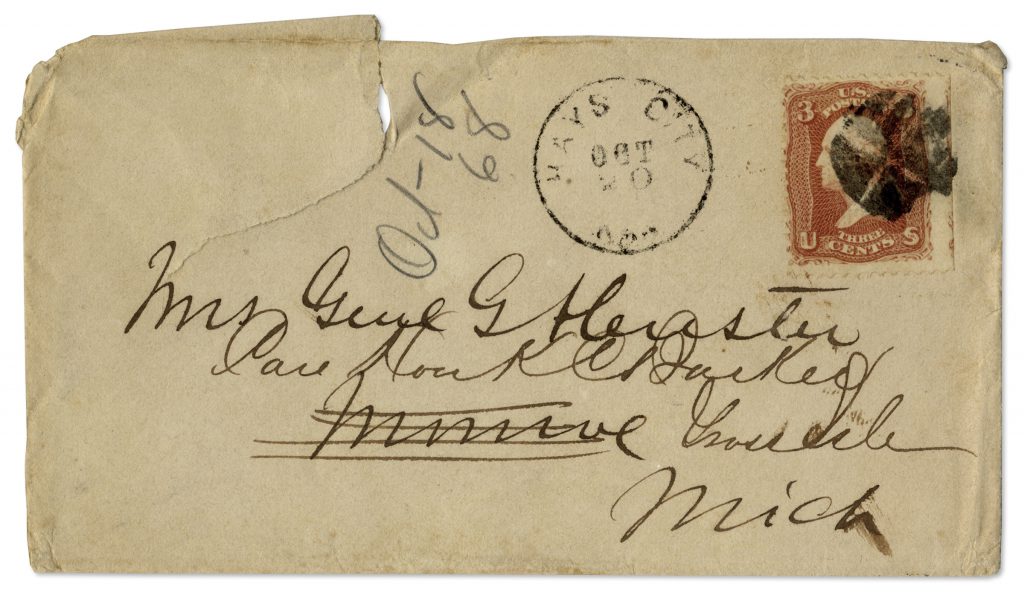 Oct-18
68
HAYS CITY
OCT
20
3
U.S.
POST
U THREE S
CENTS
Mrs Genl G A Custer
Care Hon K C Barker
Monroe Isle
Mich